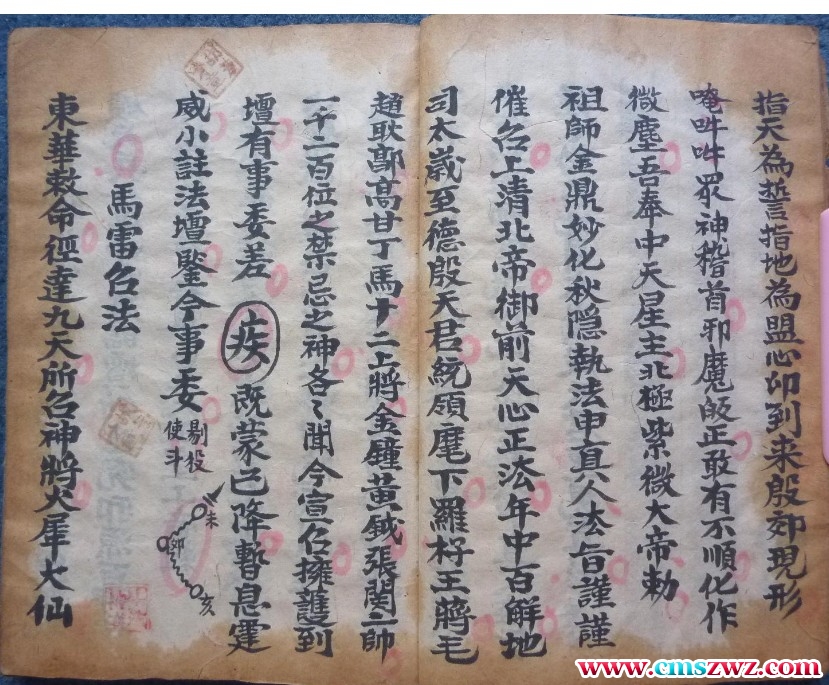 指天為誓指地為盟心印到来殷郊現形
唵吽吽眾神稽首邪魔皈正敢有不順化作
微塵吾奉中天星主北極紫微大帝勅
祖師金鼎妙化秋隐執法申真人法旨謹謹
催召上清北帝御前天心正法年中百解地
司太歲至德殷天君統領麾下羅杍王蔣毛
趙耿郭高甘丁馬十二上將金鐘黃鉞張関二帥
一千二百位之禁忌之神各々聞今宣召擁護到
壇有事委差 疾 既蒙已降暫息霆
威小註法壇鑒今事委
剔役
使斗
未
卯
亥
馬雷召法
東華敕命徑達九天所召神將火犀大仙
www.cmszwz.com